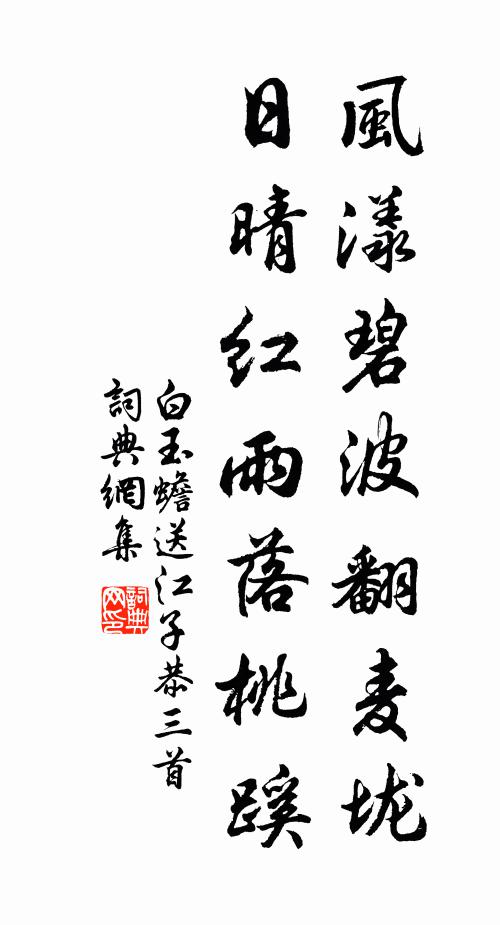 風漾碧波翻麦垅
日晴红雨落桃蹊
白玉蟾送江子恭三首
詞典網集
詞典
网印